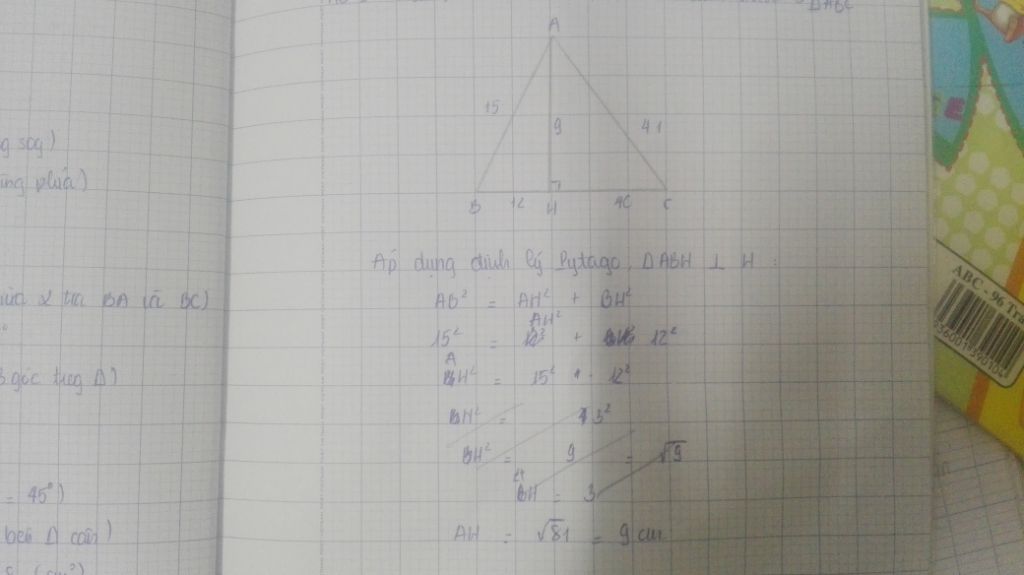 ΔABC
A
15
9
41
B 12 H 40 C
g sog)
ùng phía)
BA và BC)
góc trog Δ)
= 45°)
bên Δ cân)
Áp dụng định lý Pytago, ΔABH ⊥ H :
AB² = AH² + BH²
AH²
15² = + 12²
AH² = 15² - 12²
BH² = 3²
BH² = 9 = √9
BH = 3
AH = √81 = 9 cm
ABC - 96 Tr